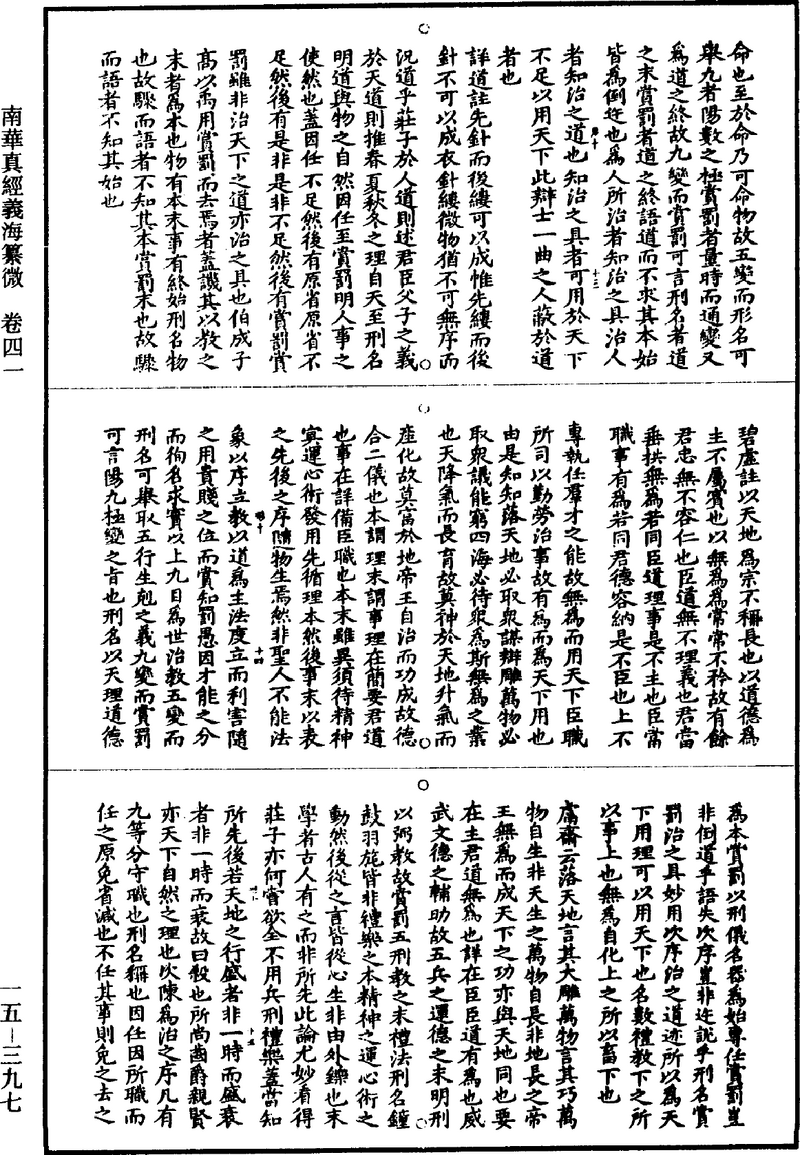 南華真經義海纂微　卷四一
一五—三九七
命也至於命乃可命物故五變而形名可
舉九者陽數之極賞罰者量時而通變又
為道之終故九變而賞罰可言刑名者道
之末賞罰者道之終語道而不求其本始
皆為倒迕也為人所治者知治之具治人
者知治之道也知治之具者可用於天下
不足以用天下此辯士一曲之人蔽於道
者也
詳道註先針而後縷可以成帷先縷而後
針不可以成衣針縷微物猶不可無序而
況道乎莊子於人道則述君臣父子之義
於天道則推春夏秋冬之理自天至刑名
明道與物之自然因任至賞罰明人事之
使然也蓋因任不足然後有原省原省不
足然後有是非是非不足然後有賞罰賞
罰雖非治天下之道亦治之具也伯成子
高以禹用賞罰而去焉者蓋譏其以教之
末者為本也物有本末事有終始刑名物
也故驟而語者不知其本賞罰末也故驟
而語者不知其始也
碧虛註以天地為宗不稱長也以道德為
主不屬賓也以無為為常常不矜故有餘
君忠無不容仁也臣道無不理義也君當
垂拱無為若同臣道理事是不主也臣當
職事有為若同君德容納是不臣也上不
專執任羣才之能故無為而用天下臣職
所司以勤勞治事故有為而為天下用也
由是知知落天地必取眾謀辯雕萬物必
取眾議能窮四海必待眾為斯無為之業
也天降氣而長育故莫神於天地升氣而
產化故莫富於地帝王自治而功成故德
合二儀也本謂理末謂事理在簡要君道
也事在詳備臣職也本末雖異須待精神
宜運心術發用先循理本然後事末以表
之先後之序隨物生焉然非聖人不能法
象以序立教以道為主法度立而利害隨
之用貴賤之位而賞知罰愚因才能之分
而徇名求實以上九目為世治教五變而
刑名可舉取五行生剋之義九變而賞罰
可言陽九極變之旨也刑名以天理道德
為本賞罰以刑儀名器為始專任賞罰豈
非倒道乎語失次序豈非迕說乎刑名賞
罰治之具妙用次序治之道迹所以為天
下用理可以用天下也名數禮教下之所
以事上也無為自化上之所以畜下也
鬳齋云落天地言其大雕萬物言其巧萬
物自生非天生之萬物自長非地長之帝
王無為而成天下之功亦與天地同也要
在主君道無為也詳在臣臣道有為也威
武文德之輔助故五兵之運德之末明刑
以弼教故賞罰五刑教之末禮法刑名鐘
鼓羽旄皆非禮樂之本精神之運心術之
動然後從之言皆從心生非由外鑠也末
學者古人有之而非所先此論尤妙看得
莊子亦何嘗欲全不用兵刑禮樂蓋當知
所先後若天地之行盛者非一時而盛衰
者非一時而衰故曰殺也所尚齒爵親賢
亦天下自然之理也次陳為治之序凡有
九等分守職也刑名稱也因任因所職而
任之原免省減也不任其事則免之去之